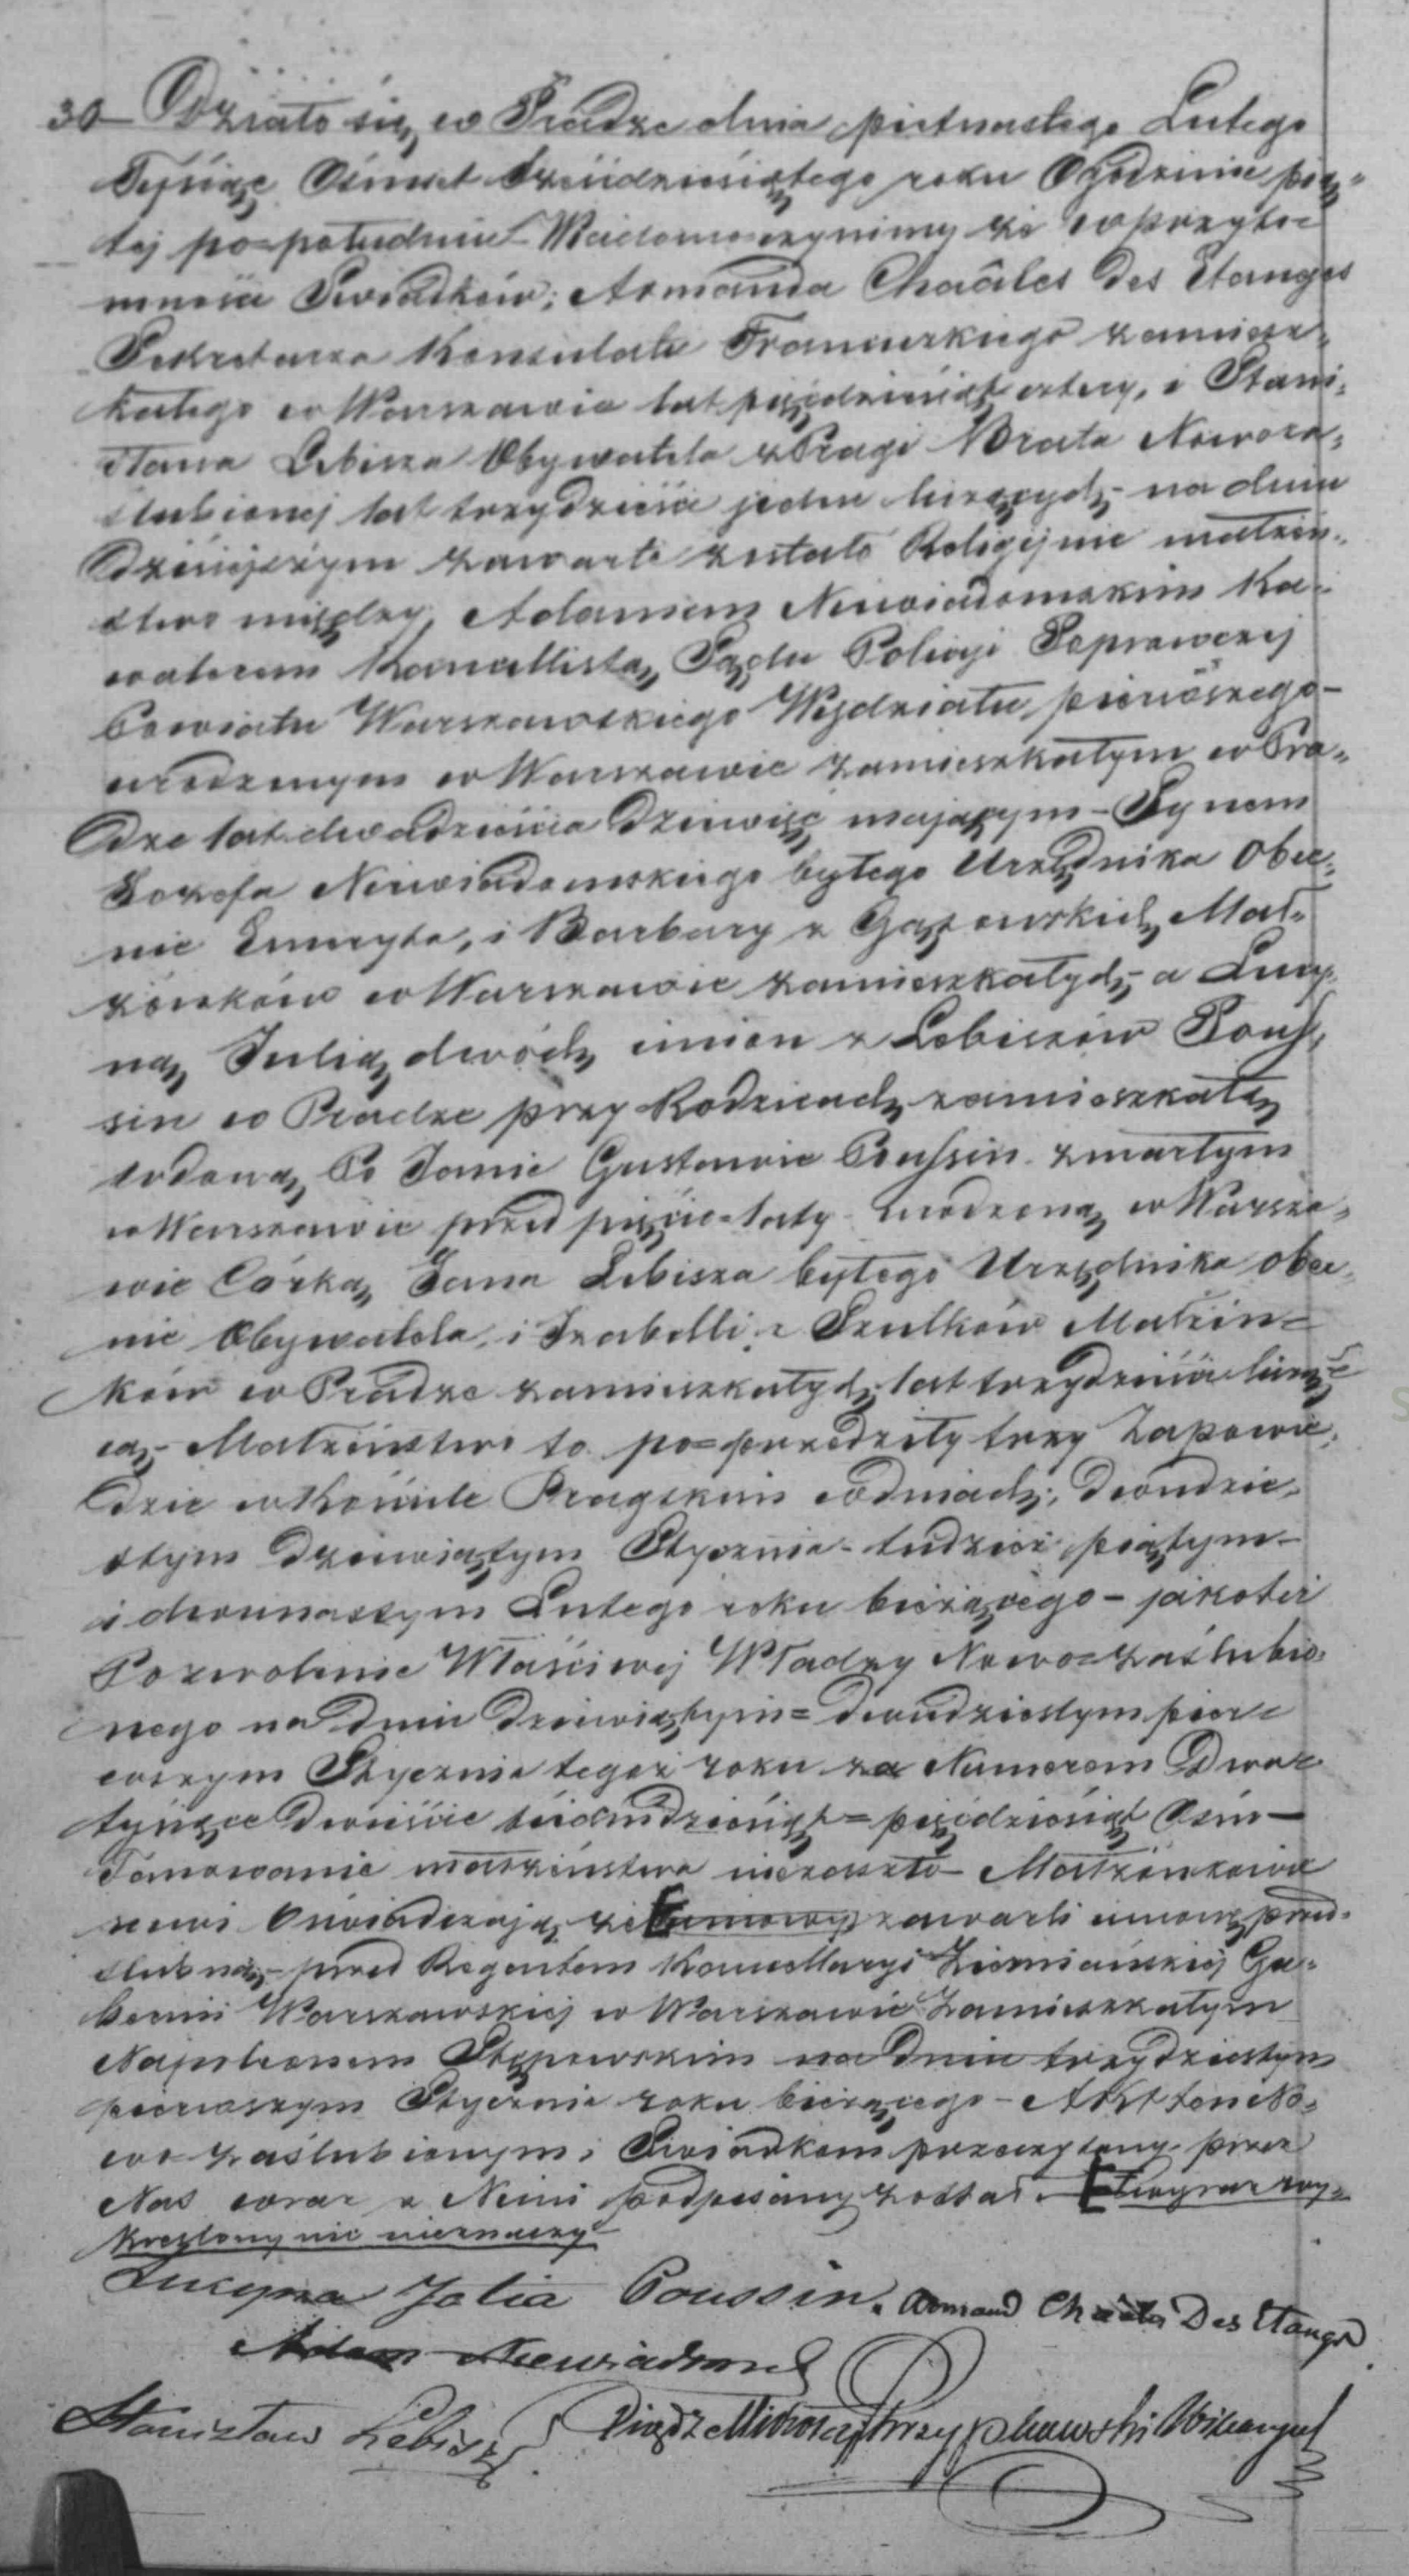 30 Działo się w Pradze dnia piętnastego Lutego
Tysiąc Osimset Sześćdziesiątego roku O godzinie pią-
tej po=południu – Wiadomo czynimy że w przyto=
mności Świadków; Armanda Chaâles Des Etangs
Sekretarza Konsulatu Francuzkiego zamiesz-
kałego w Warszawie lat pięćdziesiąt cztery, i Stani-
sława Lebisza Obywatela z Pragi Brata Nowoza-
ślubionej lat trzydzieści jeden liczących – na dniu
dzisiejszym zawarte zostało Religijnie małżeń-
stwo między, Adamem Niewiadomskim Ka-
walerem Kancellistą Sądu Policyi Poprawczej
Powiatu Warszawskiego Wydziału pierwszego –
urodzonym w Warszawie zamieszkałym w Pra-
dze lat dwadzieścia dziewięć mającym – Synem
Józefa Niewiadomskiego byłego Urzędnika obec-
nie Emeryta, i Barbary z Gązowskich Mał-
żonków w Warszawie zamieszkałych – a Lucy-
ną Julią dwóch imion z Lebiszów Pous-
sin w Pradze przy Rodzicach zamieszkałą
wdową Po Janie Gustawie Poussin zmarłym
w Warszawie przed pięcie=laty – urodzoną w Warsza-
wie Córką Jana Lebisza byłego Urzędnika obec-
nie Obywatela, i Izabelli z Szulków Małżon=
ków w Pradze zamieszkałych, lat trzydzieści liczą-
cą – Małżeństwo to po=przedziły trzy Zapowie-
dzie w Kościele Pragskim w dniach; dwudzie-
stym dziewiątym Stycznia – tudzież piątym –
i dwunastym Lutego roku bieżącego – jakoteż
Pozwolenie Właściwej Władzy Nowo=zaślubio-
nego na dniu dziewiątym= dwudziestym pier=
wszym Stycznia tegoż roku za Numerem Dwa=
tysiące dwieście siedmdziesiąt= pięćdziesiąt Ośm –
Tamowanie małżeństwa niezaszło – Małżonkowie
nowi Oświadczają że [umowy] zawarli umowę przed-
ślubną – przed Regentem Kancellaryi Ziemiańskiej Gu-
berni Warszawskiej w Warszawie Zamieszkałym
Napoleonem Stępowskim na dniu trzydziestym
pierwszym Stycznia roku bieżącego – Akt ten No-
wo=zaślubionym i Świadkom przeczytany przez
Nas wraz z Niemi podpisany został. – [wyraz wy-
kreślony nic nieznaczy –
Lucyna Julia Poussin. Armand Chaâles Des Etangs
Adam Niewiadomski
Stanisław Lebisz Xiądz Mikołaj Przyphowski Wikaryusz